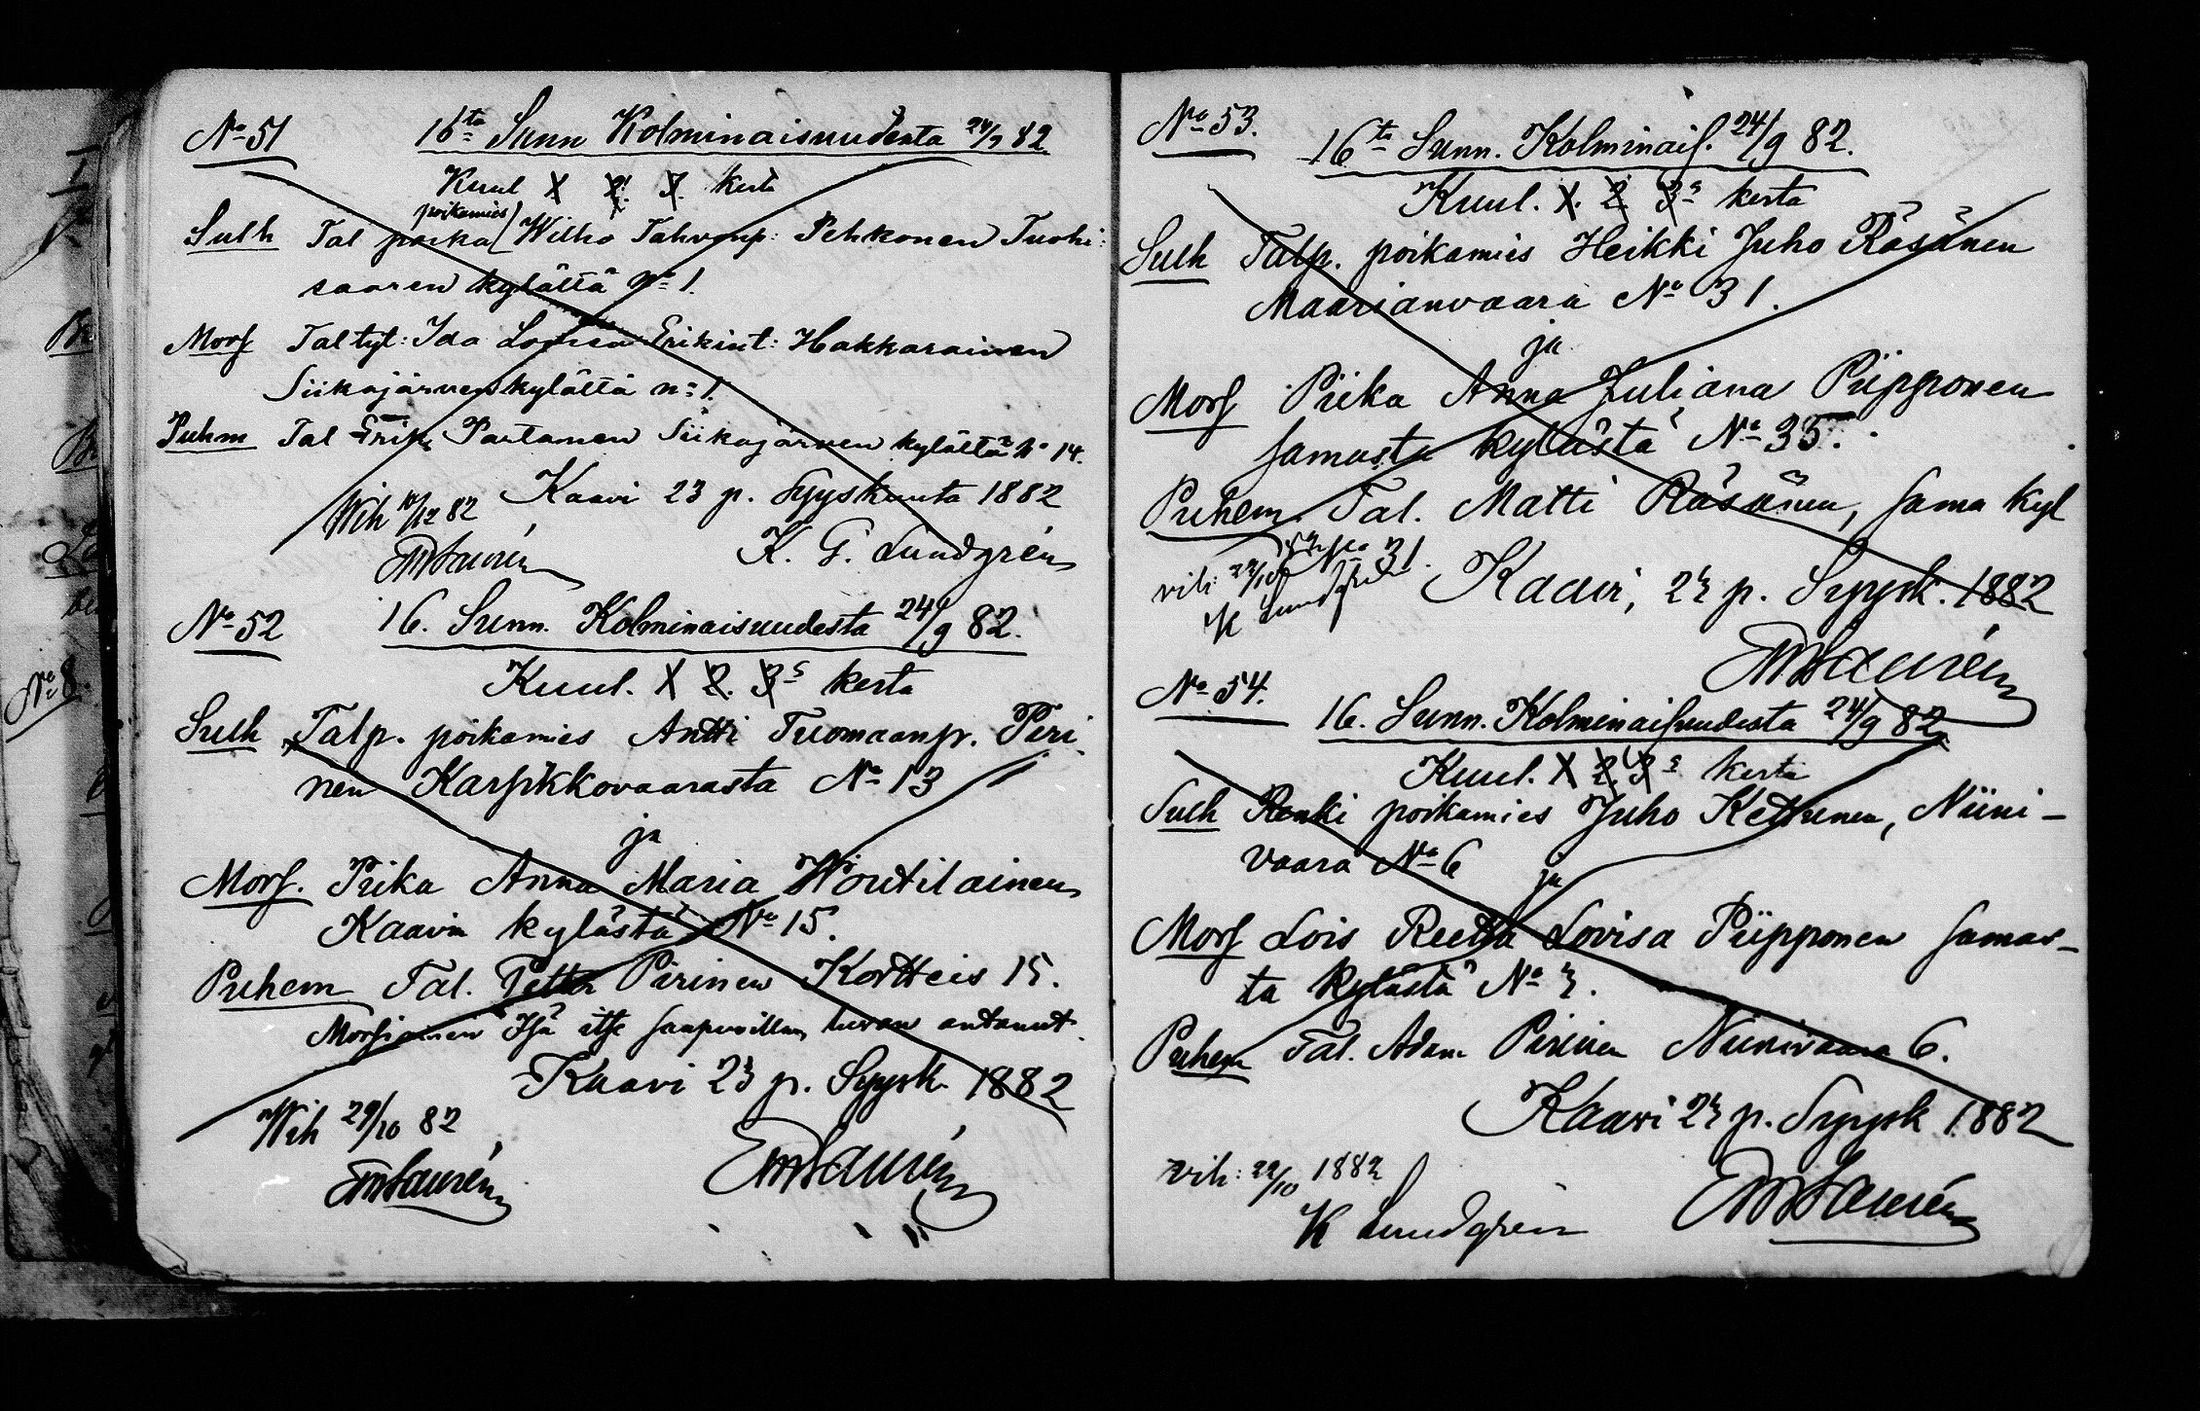 No 51
16ta Sunn Kolminaisuudesta 24/9 82
Kuul 1 2. 3. kerta
poikamies
Sulh Tal poika Wilho Tahvonp: Pehkonen Tuohi:
saaren kylältä No 1.
Mors Tal tyt: Ida Lovisa Erikint: Hakkarainen
Siikajärven kylältä no 1.
Puhm Tal Erik Partanen Siikajärven kylältä No 14.
Kaavi 23 p. Syyskuuta 1882
Wih 10/12 82
K. G. Lundgrén
EmLaurén
No 52
16. Sunn. Kolminaisuudesta 24/9 82.
Kuul. 1 2. 3s kerta
Sulh Talp. poikamies Antti Tuomaanp. Piri
nen Karsikkovaarasta No 13
ja
Mors. Piika Anna Maria Woutilainen
Kaavin kylästä No 15.
Puhem Tal. Petter Pirinen Kortteis 15.
Morsiamen Isä itse saapuvillan luvan antanut.
Kaavi 23 p. Syysk. 1882
Wih 29/10 82
EmLaurén
EmLaurén
No 53.
16ta Sunn. Kolminais. 24/9 82.
Kuul. 1. 2 3s kerta
Sulh Talp. poikamies Heikki Juho Räsänen
Maarianvaara No 31.
ja
Mors Piika Anna Juliana Piipponen
samasta kylästä No 35.
Puhem Tal. Matti Räsänen, sama kyl
No 31.
vih: 22/10 82
K Lundgrén
Kaavi, 23 p. Syysk. 1882
EmLaurén
No 54.
16. Sunn. Kolminaisuudesta 24/9 82
Kuul. 1 2 3s kerta
Sulh Renki poikamies Juho Kettunen, Niini-
vaara No 6
ja
Mors Lois Reetta Lovisa Piipponen samas-
ta kylästä No 3.
Puhem Tal. Adam Pirinen Niinivaara 6.
Kaavi 23 p. Syysk 1882
vih: 22/10 1882
K Lundgrén
EmLaurén
No 8.